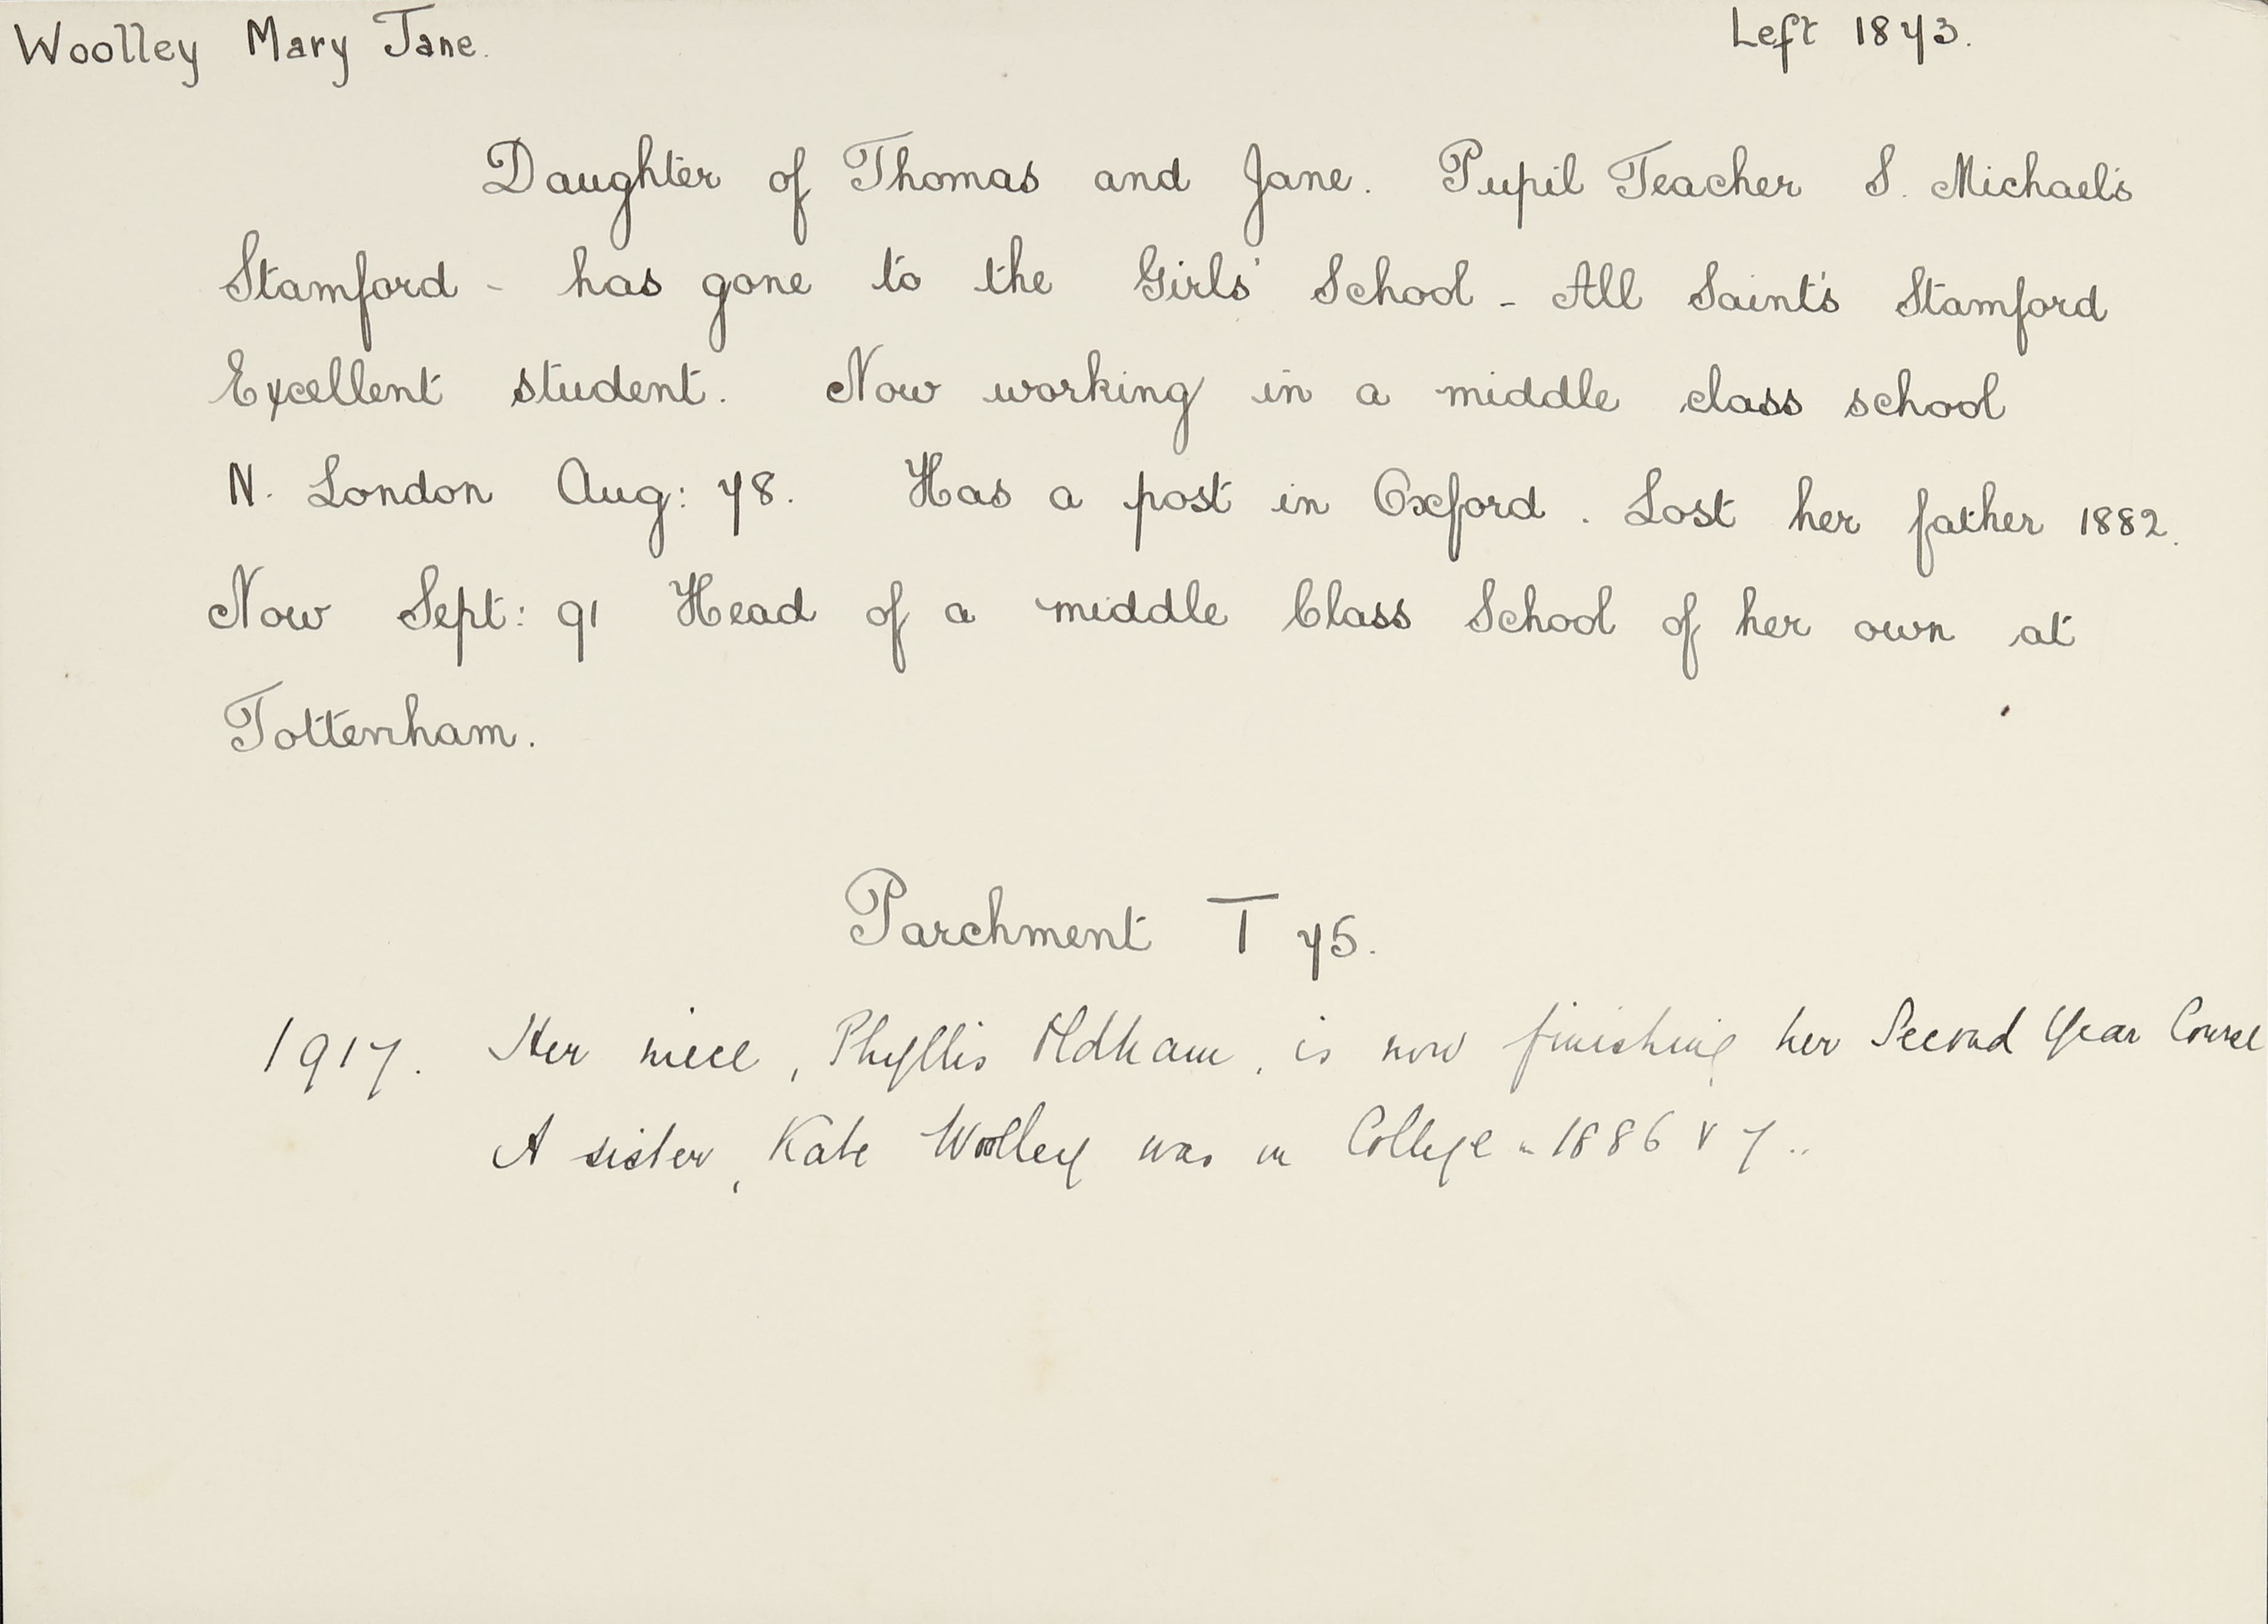 Woolley Mary Jane. Left 1873.
Daughter of Thomas and Jane. Pupil Teacher S. Michael's
Stamford - has gone to the Girls' School - All Saint's Stamford
Excellent student. Now working in a middle class school
N. London Aug: 78. Has a post in Oxford. Lost her father 1882.
Now Sept: 91 Head of a middle Class School of her own at
Tottenham.
Parchment T 75.
1917. Her niece, Phyllis Oldham, is now finishing her Second Year Course
A sister, Kate Woolley was in College - 1886 & 7..